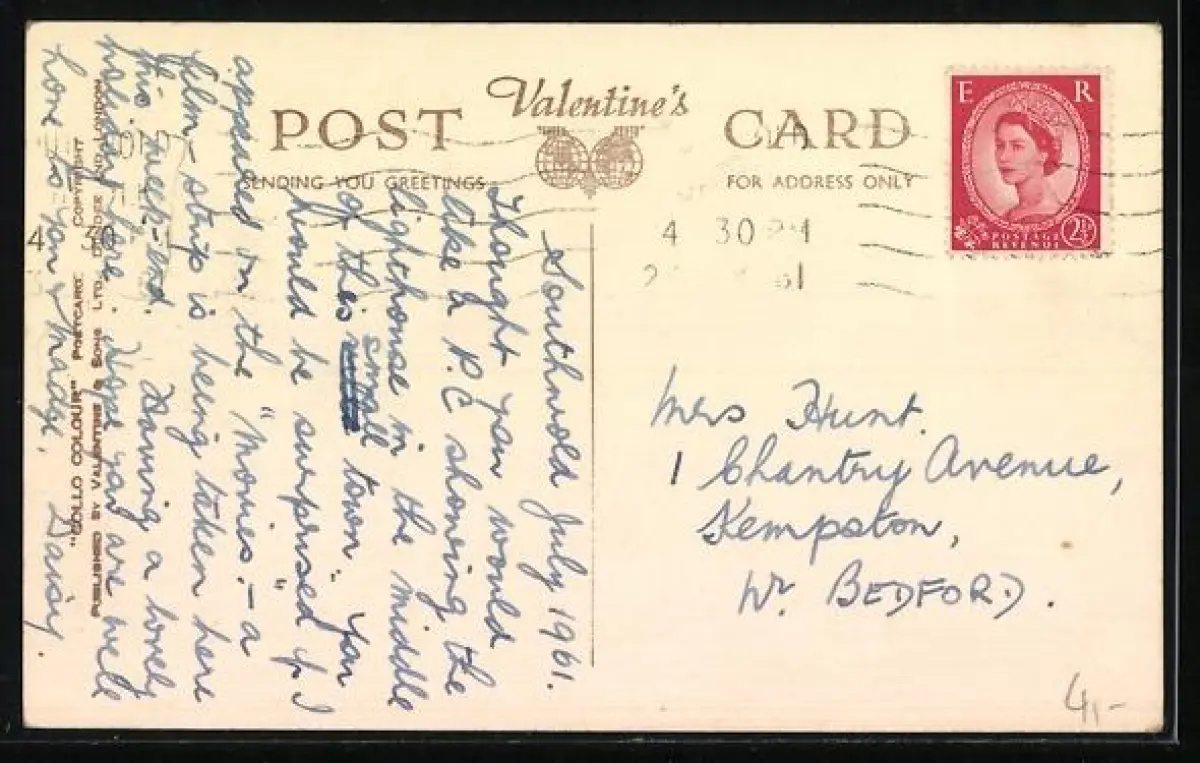 Valentine's
POST CARD
SENDING YOU GREETINGS
FOR ADDRESS ONLY
E R
POSTAGE
REVENUE
2½D
4 30 PM
61
Southwold July 1961.
Thought you would
like a P.C showing the
lighthouse in the middle
of this small town. You
would be surprised if I
appeared on the "Movies". – a
film-strip is being taken here
this week-end. Having a lovely
holiday here. Hope you are well
Love to you & Madge, Daisy.
Mrs Hunt.
1 Chantry Avenue,
Kempston,
Nr. BEDFORD.
COLOUR" POSTCARD COPYRIGHT
PUBLISHED BY VALENTINE & SONS LTD. DUNDEE AND LONDON
4,-